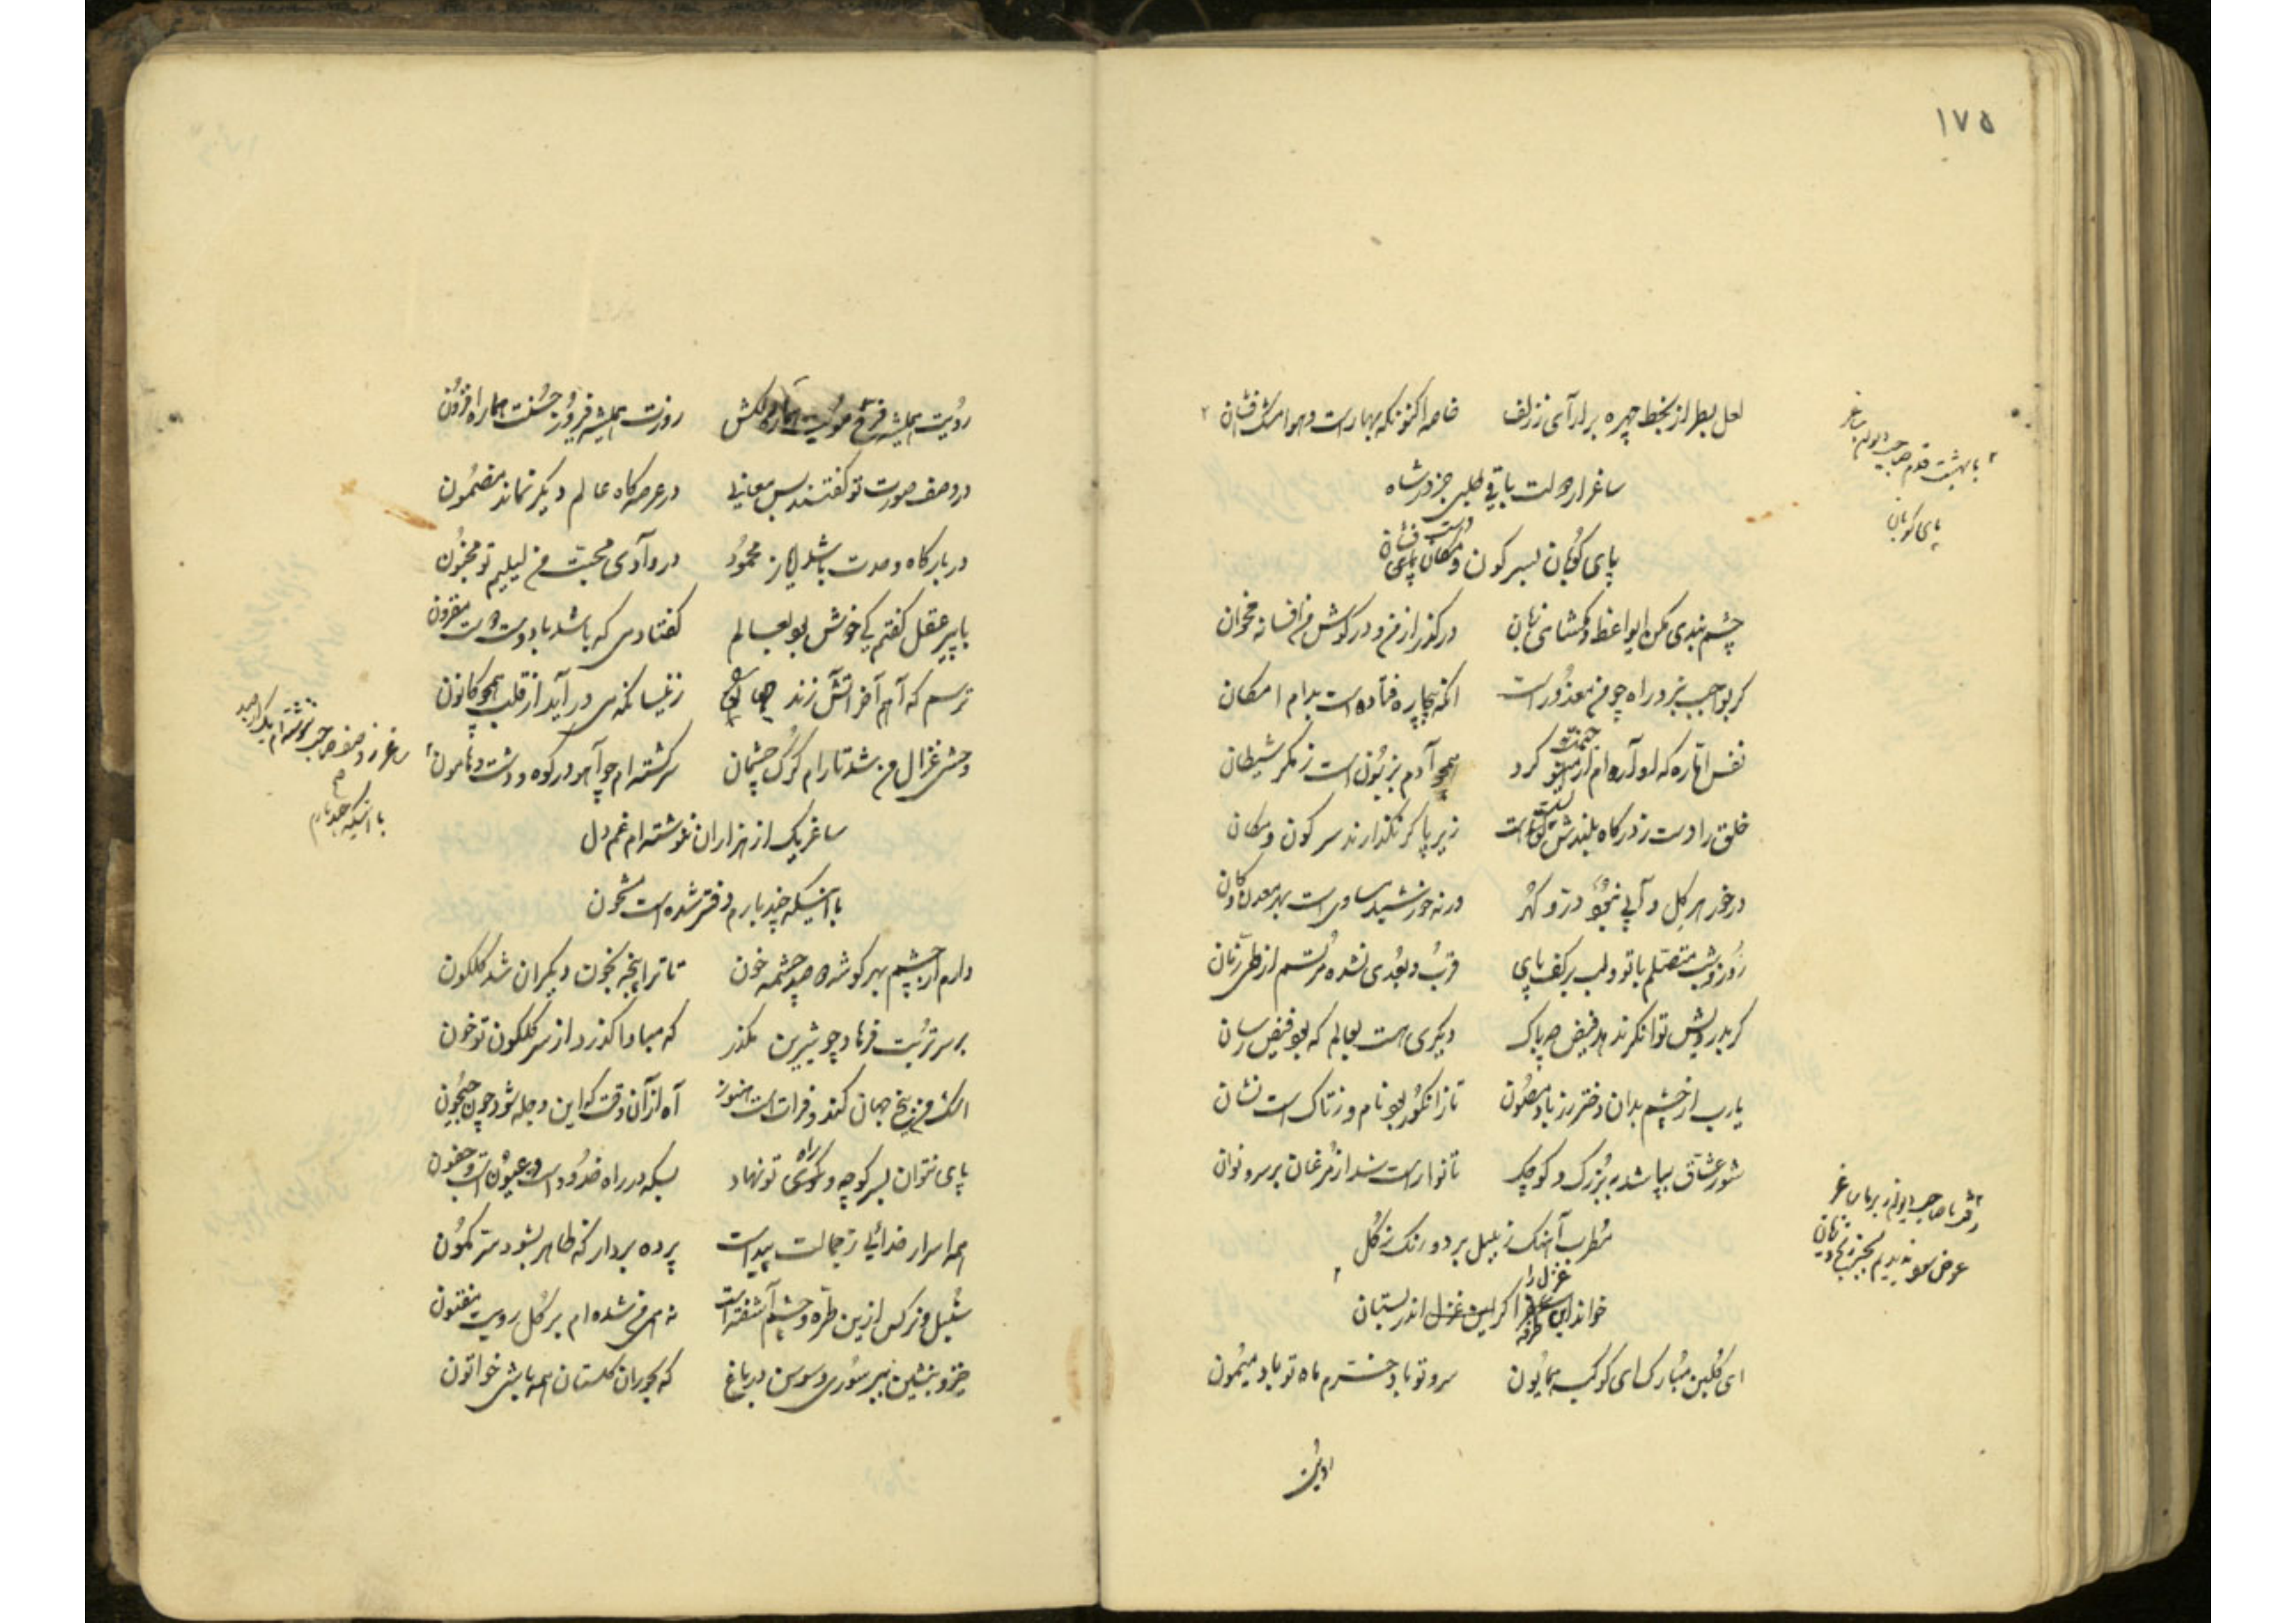 ۱۷۵
لعل بط از بخط چهره برارآی ززلف خاصه اکنونکه بهارست و هوا مشک فشان
ساغر ار دولت باقی طلبی جز در شاه
پای کوبان بسر کون و مکان پای دست فشان
چشم بندی مکن ایواعظ و مکشای زبان درگذر از من و در گوش من افسانه مخوان
گر بو جب نبرد راه چو من معذورست آنکه بیچاره فتاده است بدام امکان
نفس اماره که آواره ام از کرد همچو آدم بزبونست ز مکر شیطان
خلق را دست ز درگاه بلندش است زیر پا گر نگذارند سر کون و مکان
در خور هر گل و آبی نبود در و گهر ورنه خورشید مساوی است بهر معدن و کان
روز و شب متصلم با تو و لب بر کف پای قرب و بعدی نشده مرتسم از طی زمان
گر بدرویش توانگر ندهد فیض چه باک دیگری هست بعالم که بود فیض رسان
یارب از چشم بدان دختر رز باد مصون تا ز انگور بود نام و ز تاک است نشان
شور عشاق بپا شد به بزرگ و کوچک تا نوا راست شد از مرغان بر سرو نوان
مطرب آهنگ ز بلبل برد و رنگ ز گل
خواند این غزل را اندر بستان
ای گلبن مبارک ای کوکب همایون سرو تو باد خرم ماه تو باد میمون
رویت
با بهشت قدم صاحب دیوانم ساغر
پای کوبان
دفتر صاحب دیوان ساغر
عوض
رویت همیشه فرخ مویت هماره دلکش روزت همیشه فیروز حسنت هماره افزون
در وصف صورت تو گفتند بس معانی در عرصه گاه عالم دیگر نماند مضمون
در بارگاه وحدت باشد ایاز محمود در وادی محبت من لیلیم تو مجنون
با پیر عقل گفتم کی خوش بود بعالم گفتا دمی که باشد با دوست مقرون
ترسم که آهم آخر آتش زند زینسان که می درآید از قلب همچو کانون
وحشی غزال من شد تا رام گرگ چشمان سرگشته ام چو آهو در کوه و دشت و هامون
ساغر یک از هزاران ننوشته ام غم دل
با اینکه چند بارم دفتر شده است مشحون
دارم از چشم بهر گوشه دو صد چشمه خون تا ترا پنجه بخون دیگران شد گلگون
بر سر تربت فرهاد چو شیرین مگذر که مبادا گذرد از سر گلگون تو خون
اشک من بیخ جهان کند و فراتست هنوز آه از آن وقت که این دجله شود چون جیحون
پای نتوان بسر کوچه و راه تو نهاد بسکه در راه خدود است و عیون است و جفون
همه اسرار خدائی ز جمالت پیداست پرده بردار که ظاهر بشود سر کمون
سنبل و نرگس ازین طره و چشم آشفته است نه همی من شده ام بر گل رویت مفتون
خیز و بنشین بسر سوری و سوسن در باغ که بحوران گلستان همه باشی خواتون
ساغر ز وصف صاحب ننوشته ام یک از صد
با اینکه چند بارم